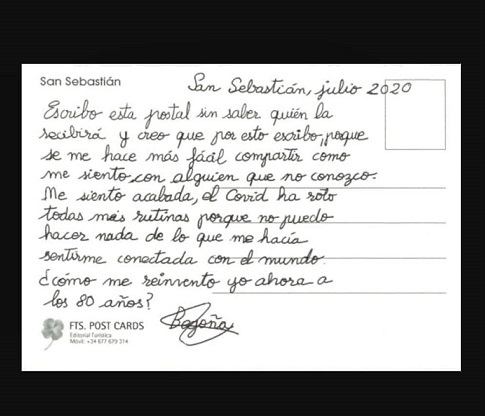 San Sebastián
San Sebastián, julio 2020
Escribo esta postal sin saber quién la
recibirá y creo que por esto escribo, porque
se me hace más fácil compartir como
me siento con alguien que no conozco.
Me siento acabada, el Covid ha roto
todas mis rutinas porque no puedo
hacer nada de lo que me hacía
sentirme conectada con el mundo.
¿cómo me reinvento yo ahora a
los 80 años?
Begoña
FTS. POST CARDS
Editorial Turística
Móvil: +34 677 679 314